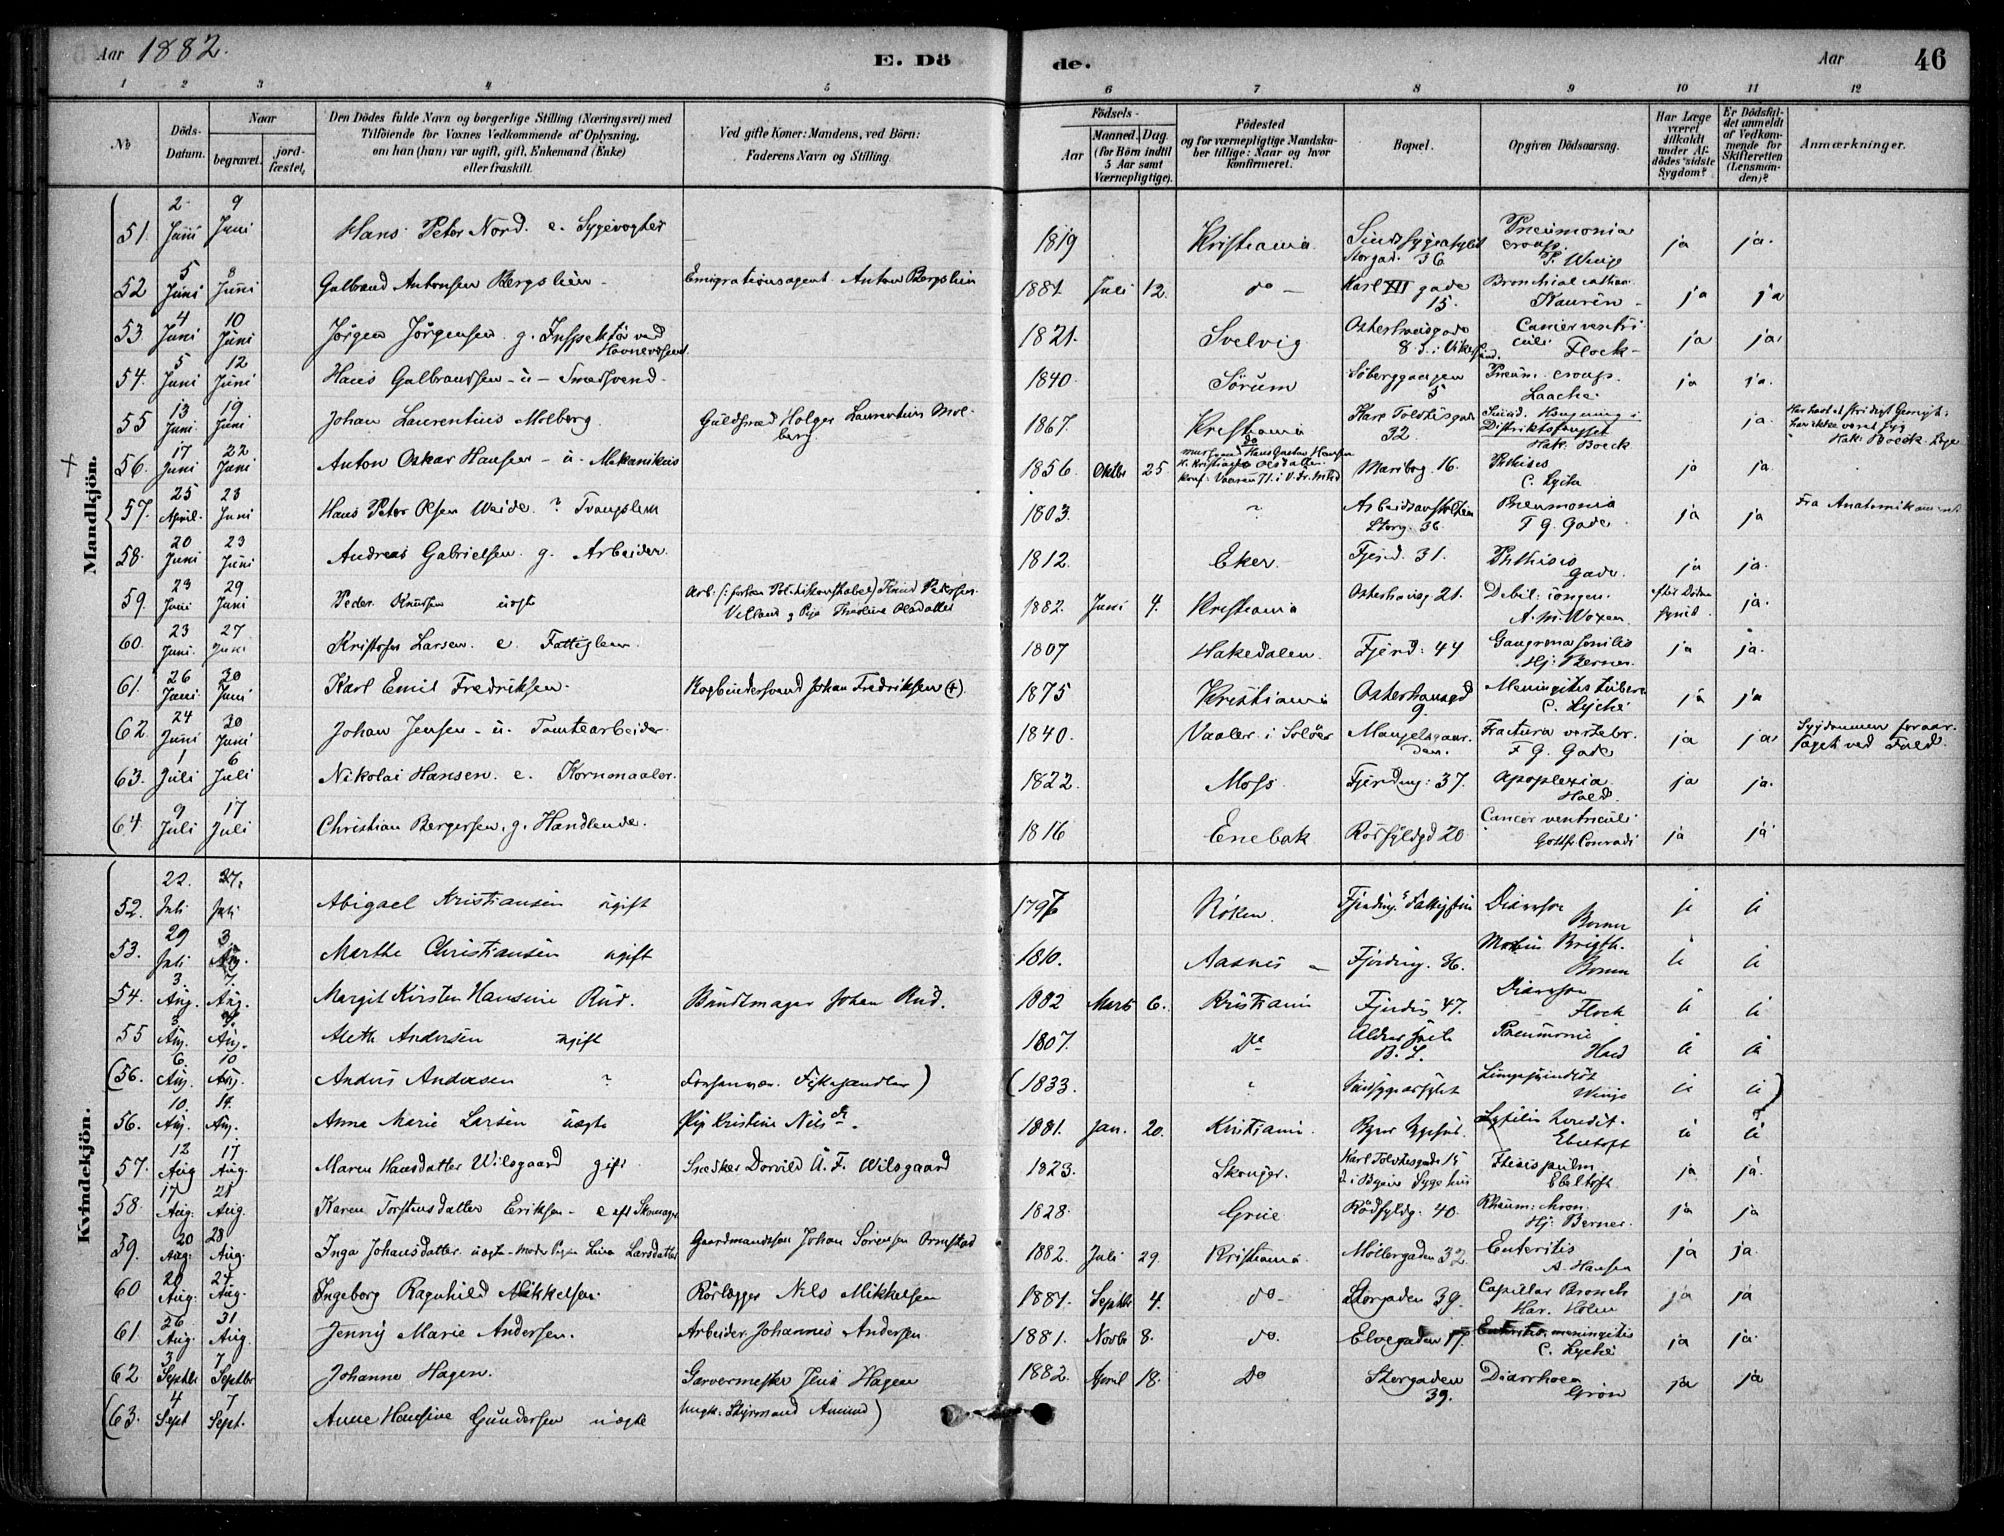 Aar 1882.
E. Dö
de.
Aar
46
1 2 3 4 5 6 7 8 9 10 11 12
№
Döds-
Datum.
Naar
begravet.
jord-
fæstet,
Den Dödes fulde Navn og borgerlige Stilling (Næringsvei) med
Tilföiende for Voxnes Vedkommende af Oplysning,
om han (hun) var ugift, gift, Enkemand (Enke)
eller fraskilt.
Ved gifte Koner: Mandens, ved Börn:
Faderens Navn og Stilling.
Födsels-
Aar
Maaned.
Dag.
(for Börn indtil
5 Aar samt
Værnepligtige).
Födested
og for værnepligtige Mandska-
ber tillige: Naar og hvor
konfirmeret.
Bopæl.
Opgiven Dödsaarsag.
Har Læge
været
tilkaldt
under Af-
dödes sidste
Sygdom?
Er Dödsfal-
det anmeldt
af Vedkom-
mende for
Skifteretten
(Lensman-
den)?
Anmærkninger.
Mandkjön.
51. 2 Juni 9 Juni Hans Peter Nord. e. Sygevogter — 1819 Kristiania Storgad. 36 Pneumonia croup. Winge ja ja.
52 5 Juni 8 Juni Gulbrand Antonsen Bergslien — Emigrationsagent Anton Bergslien 1881 Juli 12. do — Karl XII gade 15. Bronchial cathar Naurin — ja ja
53. 4 Juni 10 Juni Jörgen Jörgensen. g. Inspektör ved Havnevæsenet 1821. Svelvig Osterhausgade 8. Cancer ventriculi Flock — ja ja
54. 5 Juni 12 Juni Hans Gulbrandsen — u — Smedsvend. 1840. Sörum Söberggangen 5 Pneum. croup. Laache ja ja.
55 13 Juni. 19 Juni Johan Laurentius Molberg. Guldsmed Holger Laurentius Molberg 1867. Kristiania Karl Toldtisgade 32. Hængning i Hak. Boeck ja. Hak. Boeck. Læge
56. 17 Juni 22 Juni Anton Oskar Hansen — u. Mekanikus 1856. Oktbr 25. do Hans Gustav Hansen Maribog. 16. Phthisis C. Lyche ja ja.
57. 25 April. 23 Juni Hans Peter Olsen Weide. ? Tvangslem 1803. ? Arbeidsanstalten Storg. 36. Pneumonia F G. Gade. ja ja Fra Anatomikammeret
58. 20 Juni 23 Juni Andreas Gabrielsen. g. Arbeider 1812. Eker Fjerd. 31. Phthisis Gade. ja ja.
59. 23 Juni 29 Juni Peder Knudsen uægte Arb. (: forhen Politikonstabel) Knud Pedersen 1882. Juni 4. Kristiania Osterhausg. 21. Debil. congen. ja.
60. 23 Juni. 27 Juni Kristofer Larsen. e. Fattiglem — 1807 Hakedalen. Fjerd: 44 Gangræna senilis Hj. Berner. ja ja.
61. 26 Juni 30 Juni Karl Emil Fredriksen. Bogbindersvend Johan Fredriksen (+) 1875 Kristiania Osterhausgd 9. Meningitis tuberc C. Lyche ja ja
62. 24 Juni 30 Juni Johan Jensen — u. Tomtearbeider. 1840. Vaaler i Solöer Mangelsgaarden. Fractura vertebr. F G. Gade ja ja Sygdommen foraarsaget ved Fald.
63. 1 Juli 6 Juli Nikolai Hansen. e. Kornmaaler. 1822. Moss Fjerding: 37. Apoplexia Hald. ja ja.
64. 9 Juli 17 Juli Christian Bergersen. g. Handlende. 1816 Enebak Rödfyldgd 20 Cancer ventriculi Gottfr. Conradi ja ja
Kvindekjön.
52. 22. Juli 27. Juli Abigael Kristiansen ugift 1796 Röken. Diarrhoe ja ja
53. 29 Juli 3. Aug. Marthe Christiansen ugift 1810. Aasnes — Fjerding. 36. Morbus Brigth. ja ja
54. 3 Aug. 7 Aug. Margit Kirsten Hansine Rud. Bundtmager Johan Rud. 1882 Marts 6. Kristiania Fjerding 47. Diarrhoe Flock ja ja
55 3 Aug. Aug. Aleth Andersen ugift 1807. Do Pneumonie Hald ja ja
(56. 6 Aug. 10 Aug. Anders Andersen ? ) (1833. Sindssygeasylet Winge ja ja)
56. 10. Aug. 14. Aug. Anna Marie Larsen uægte Pig. Kristine Nilsdr. 1881. Jan. 20. Kristiania Byens Sygehus. Syfilis heredit. Ebeltoft ja ja
57. 12 Aug 17 Aug. Maren Hansdatter Wilsgaard gift. Snedker Dorvild A. F. Wilsgaard 1823. Skonjer. Karl Toldtisgade 15 d. i Byens Sygehus Ftisis pulm Ebeltoft ja ja.
58. 17 Aug. 21 Aug. Karen Torstensdatter Eriksen — e. eft Skomager 1828. Grue Rödfyldg. 40. Rheum. chron. Hj. Berner. ja ja
59. 20 Aug. 28 Aug. Inga Johansdatter. uægte — Moder Pigen Lina Larsdatter Gaardmandssön Johan Sörensen Ormstad 1882. Juli 29. Kristiania. Möllergaden 32. Enteritis A. Hansen ja ja.
60 20 Aug. 24 Aug. Ingeborg Ragnhild Mikkelsen. Rörlægger Nils Mikkelsen 1881. Septbr 4. do — Storgaden 39. Capillær Bronch Har. Holm ja ja
61. 26 Aug. 31 Aug. Jenny Marie Andersen. Arbeider Johannes Andersen 1881. Novbr 8. do. Elvegaden 17. meningitis C. Lyche ja ja.
62 3 Septbr 7 Septbr Johanne Hagen. Garvermester Jens Hagen 1882. April 18. Do Storgaden 39. Diarrhoea Grön ja ja
(63. 4 Sept 7 Sept. Anne Hansine Gundersen uægte Ungk. Styrmand Amund )